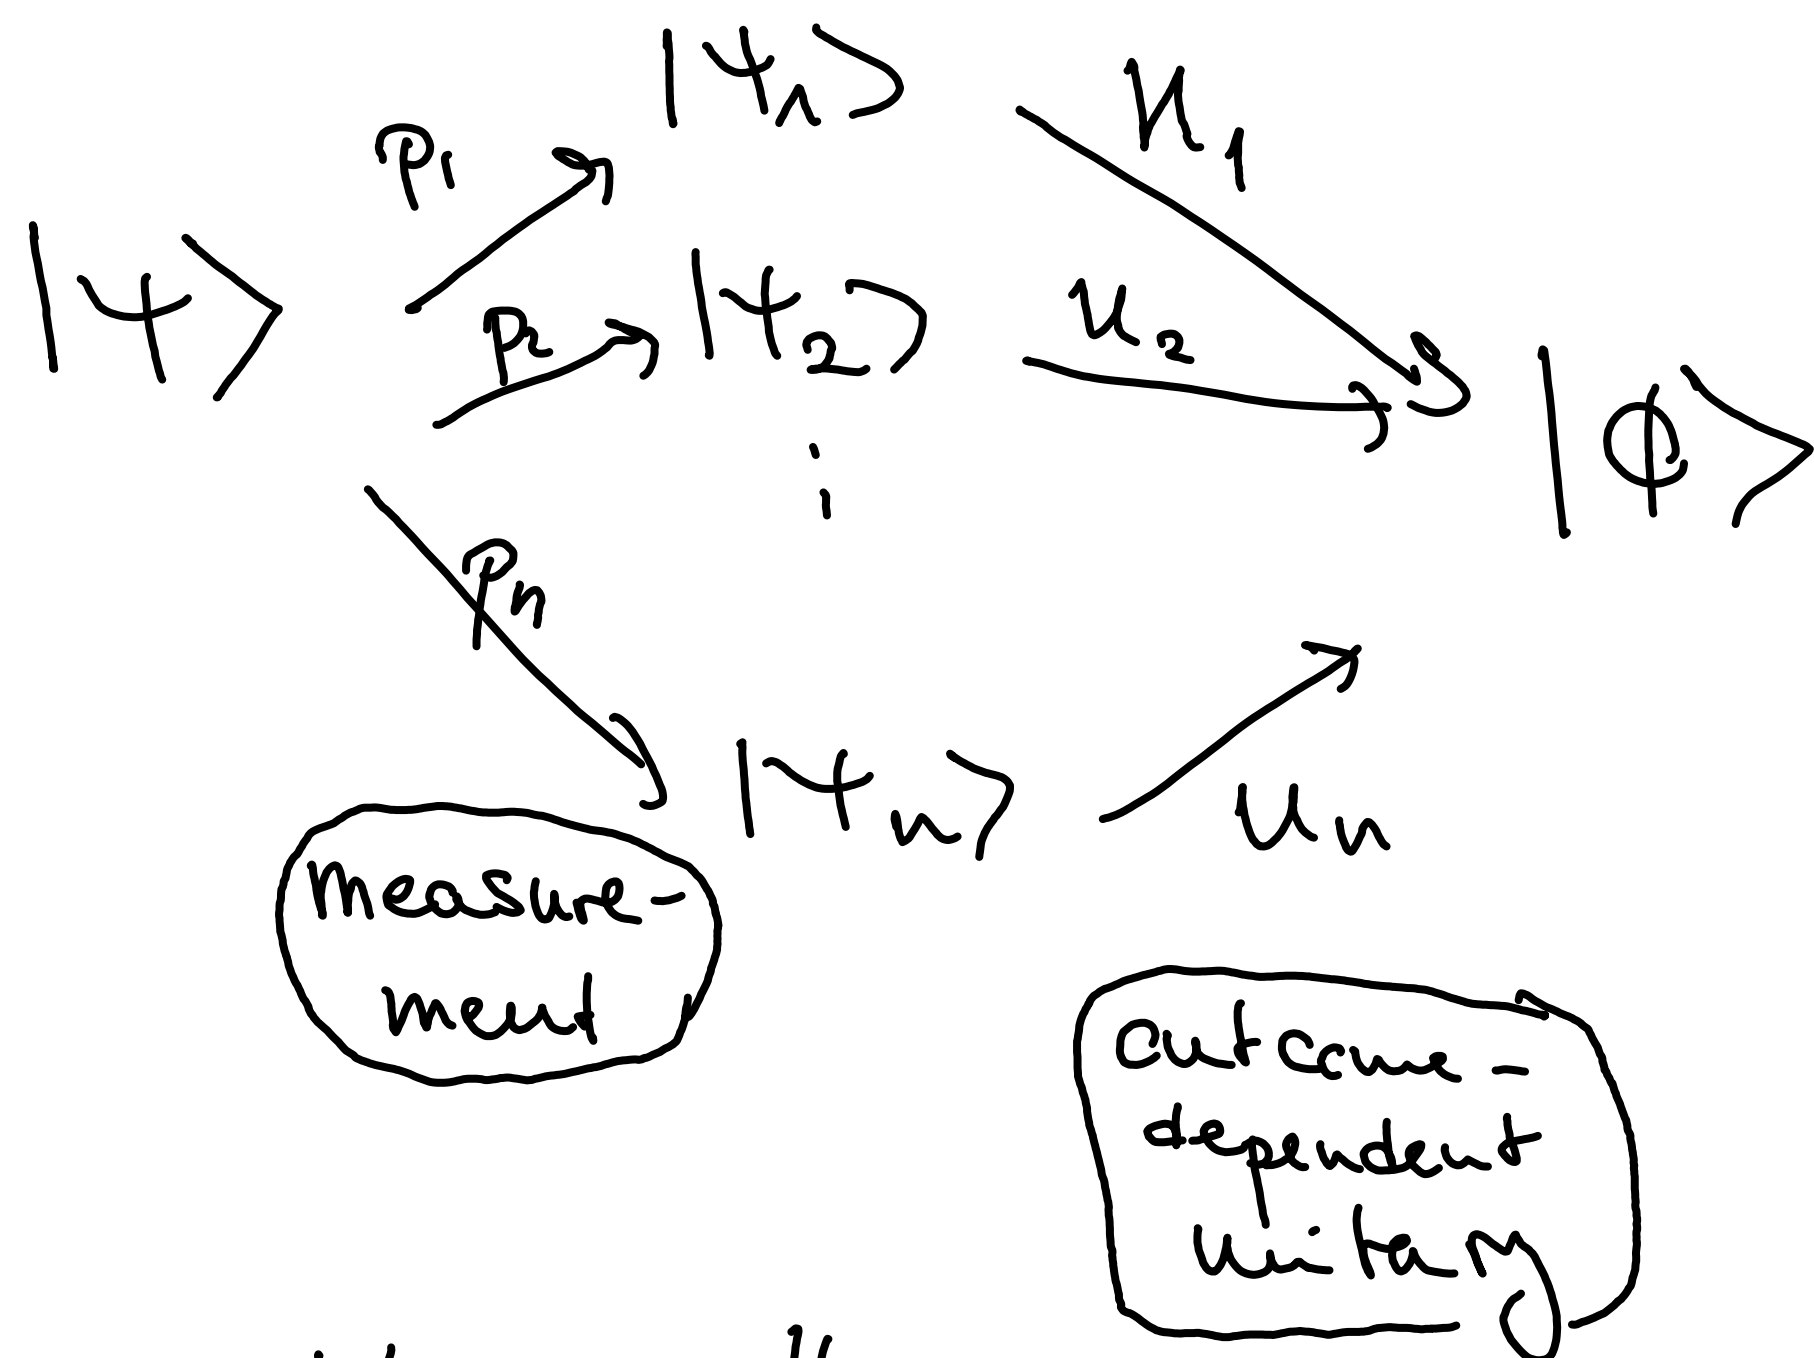 |ψ₁⟩
U₁
p₁
|ψ⟩
p₂
|ψ₂⟩
U₂
|ϕ⟩
pₙ
|ψₙ⟩
Uₙ
measure-
ment
outcome-
dependent
unitary